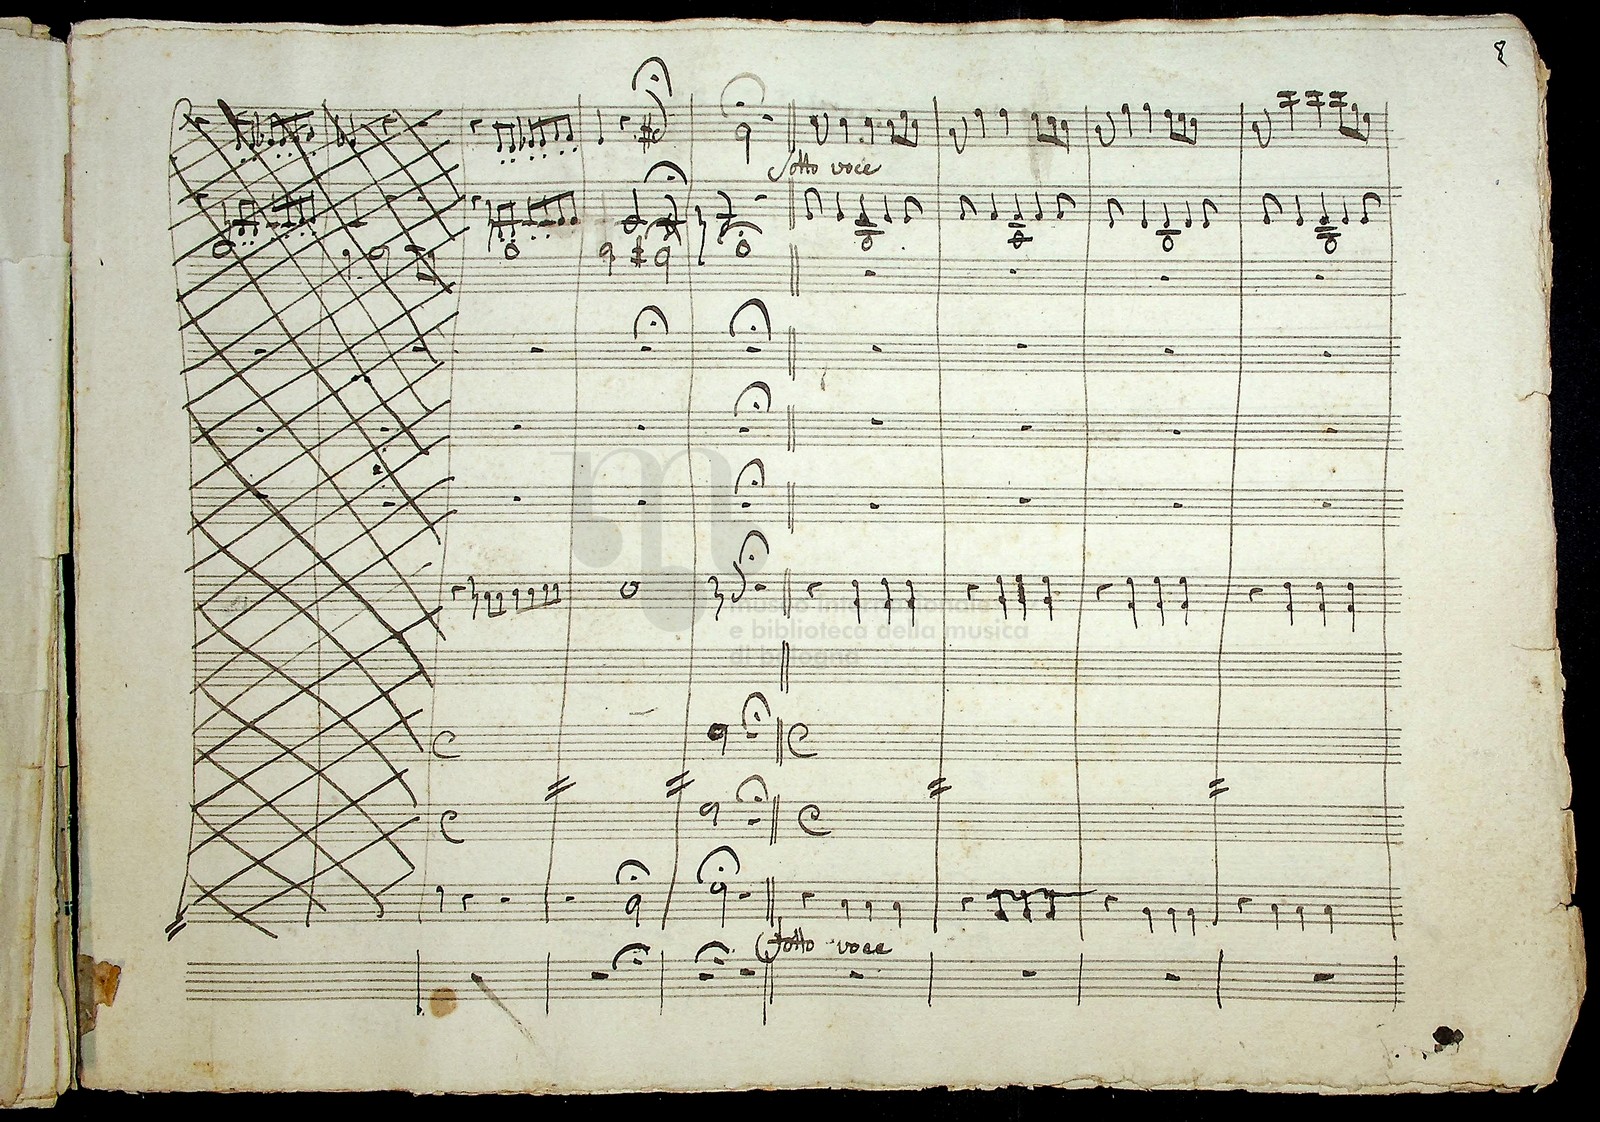 8
Sotto voce
museo internazionale
e biblioteca della musica
di bologna
Sotto voce